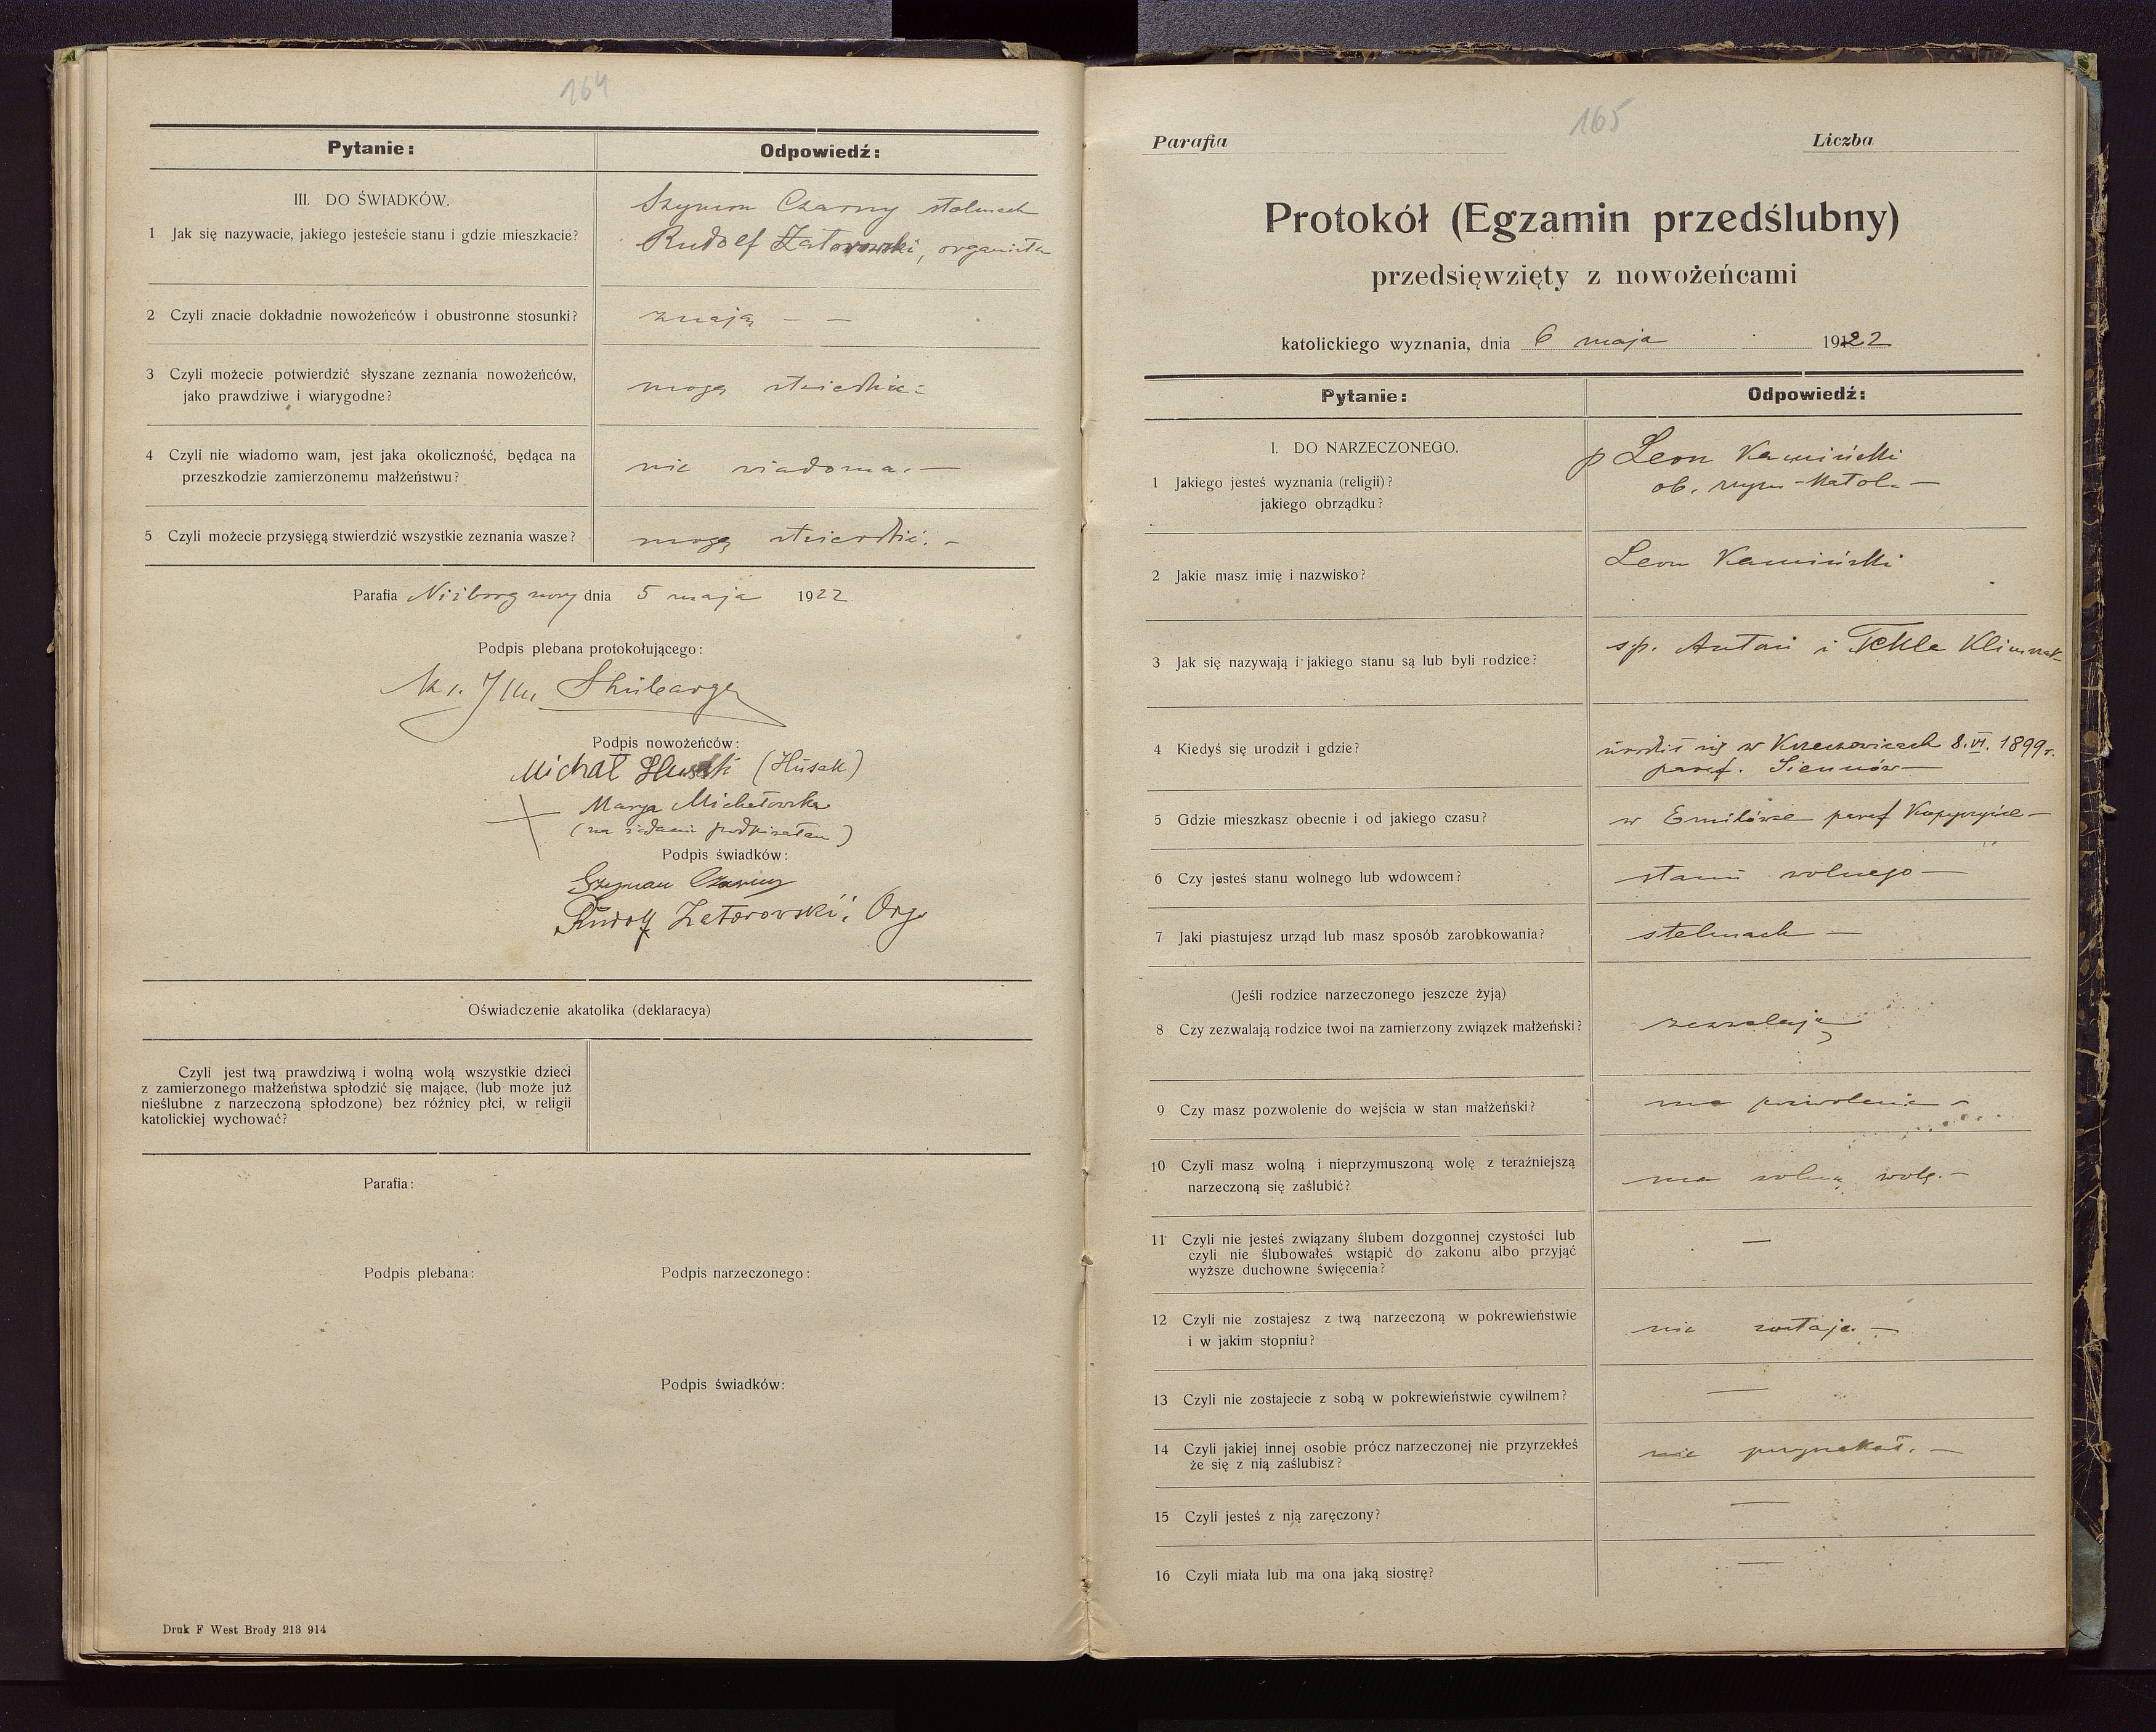 164
Pytanie:
Odpowiedź:
III. DO ŚWIADKÓW.
1 Jak się nazywacie, jakiego jesteście stanu i gdzie mieszkacie?
Szymon Czarny stelmach
Rudolf Zatorowski, organista
2 Czyli znacie dokładnie nowożeńców i obustronne stosunki?
znają — —
3 Czyli możecie potwierdzić słyszane zeznania nowożeńców,
jako prawdziwe i wiarygodne?
mogą
4 Czyli nie wiadomo wam, jest jaka okoliczność, będąca na
przeszkodzie zamierzonemu małżeństwu?
nie wiadoma. —
5 Czyli możecie przysięgą stwierdzić wszystkie zeznania wasze?
mogą stwierdzić. —
Parafia Niżborg nowy dnia 5 maja 1922
Podpis plebana protokołującego:
Podpis nowożeńców:
Michał (Husak)
Marya Michałowska
(na żądanie podpisałem)
Podpis świadków:
Szymon Czarny
Rudolf Zatorowski, Org.
Oświadczenie akatolika (deklaracya)
Czyli jest twą prawdziwą i wolną wolą wszystkie dzieci
z zamierzonego małżeństwa spłodzić się mające, (lub może już
nieślubne z narzeczoną spłodzone) bez różnicy płci, w religii
katolickiej wychować?
Parafia:
Podpis plebana:
Podpis narzeczonego:
Podpis świadków:
Druk F West Brody 213 914
165
Parafia
Liczba
Protokół (Egzamin przedślubny)
przedsięwzięty z nowożeńcami
katolickiego wyznania, dnia 6 maja 1922
Pytanie:
Odpowiedź:
I. DO NARZECZONEGO.
1 Jakiego jesteś wyznania (religii)?
jakiego obrządku?
p Leon Kamiński
ob. rzym-katol. —
2 Jakie masz imię i nazwisko?
Leon Kamiński
3 Jak się nazywają i jakiego stanu są lub byli rodzice?
sp. Antoni i Tekla Klimczak
4 Kiedyś się urodził i gdzie?
urodził się w Krzeczowicach 8.VI. 1899 r.
paraf. Siennów —
5 Gdzie mieszkasz obecnie i od jakiego czasu?
w Emilówce paraf Kopyczyńce —
6 Czy jesteś stanu wolnego lub wdowcem?
stanu wolnego —
7 Jaki piastujesz urząd lub masz sposób zarobkowania?
stelmach —
(Jeśli rodzice narzeczonego jeszcze żyją)
8 Czy zezwalają rodzice twoi na zamierzony związek małżeński?
zezwalają
9 Czy masz pozwolenie do wejścia w stan małżeński?
ma pozwolenie —
10 Czyli masz wolną i nieprzymuszoną wolę z teraźniejszą
narzeczoną się zaślubić?
ma wolną wolę. —
11 Czyli nie jesteś związany ślubem dozgonnej czystości lub
czyli nie ślubowałeś wstąpić do zakonu albo przyjąć
wyższe duchowne święcenia?
—
12 Czyli nie zostajesz z twą narzeczoną w pokrewieństwie
i w jakim stopniu?
nie zostaje. —
13 Czyli nie zostajecie z sobą w pokrewieństwie cywilnem?
—
14 Czyli jakiej innej osobie prócz narzeczonej nie przyrzekłeś
że się z nią zaślubisz?
nie przyrzekał. —
15 Czyli jesteś z nią zaręczony?
—
16 Czyli miała lub ma ona jaką siostrę?
—